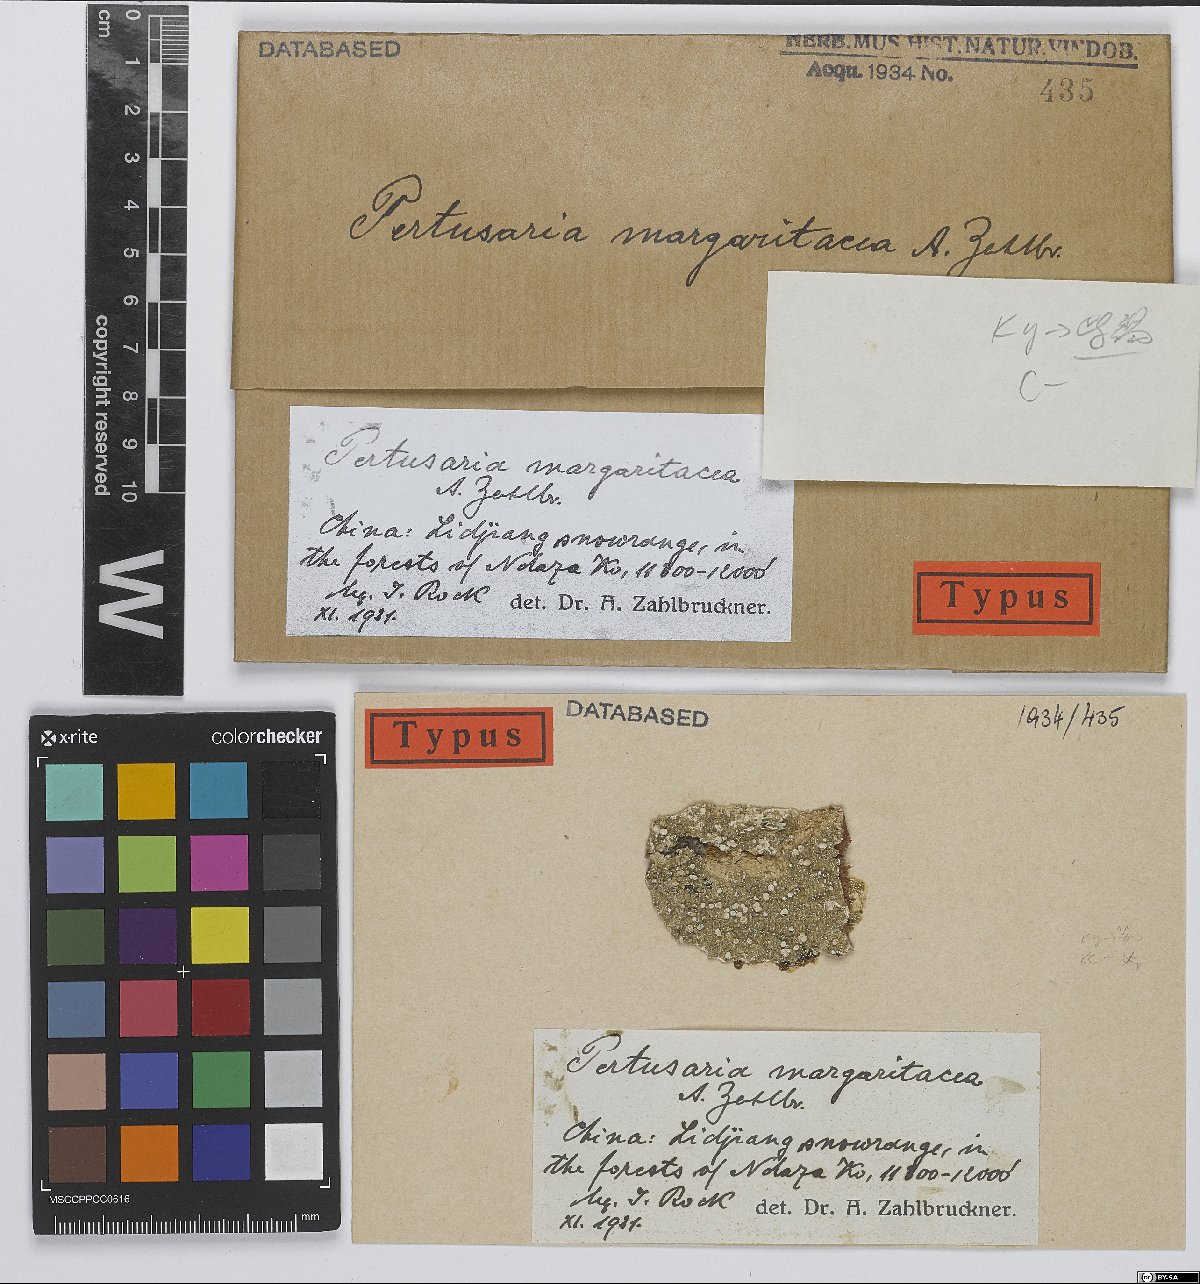 cm 0 1 2 3 4 5 6 7 8 9 10
copyright reserved
W
DATABASED
HERB.MUS.HIST.NATUR.VINDOB.
Acqu. 1934 No.
435
Pertusaria margaritacea A. Zahlbr.
Ky →
C −
Pertusaria margaritacea
A. Zahlbr.
China: Lidjiang snowrange, in
the forests of Ndaza Ko, 11800-12000'
leg. J. Rock
det. Dr. A. Zahlbruckner.
XI. 1931.
Typus
x-rite
colorchecker
MSCCPPCC0616
mm
Typus
DATABASED
1934/435
Pertusaria margaritacea
A. Zahlbr.
China: Lidjiang snowrange, in
the forests of Ndaza Ko, 11800-12000'
leg. J. Rock
det. Dr. A. Zahlbruckner.
XI. 1931.
cc BY-SA